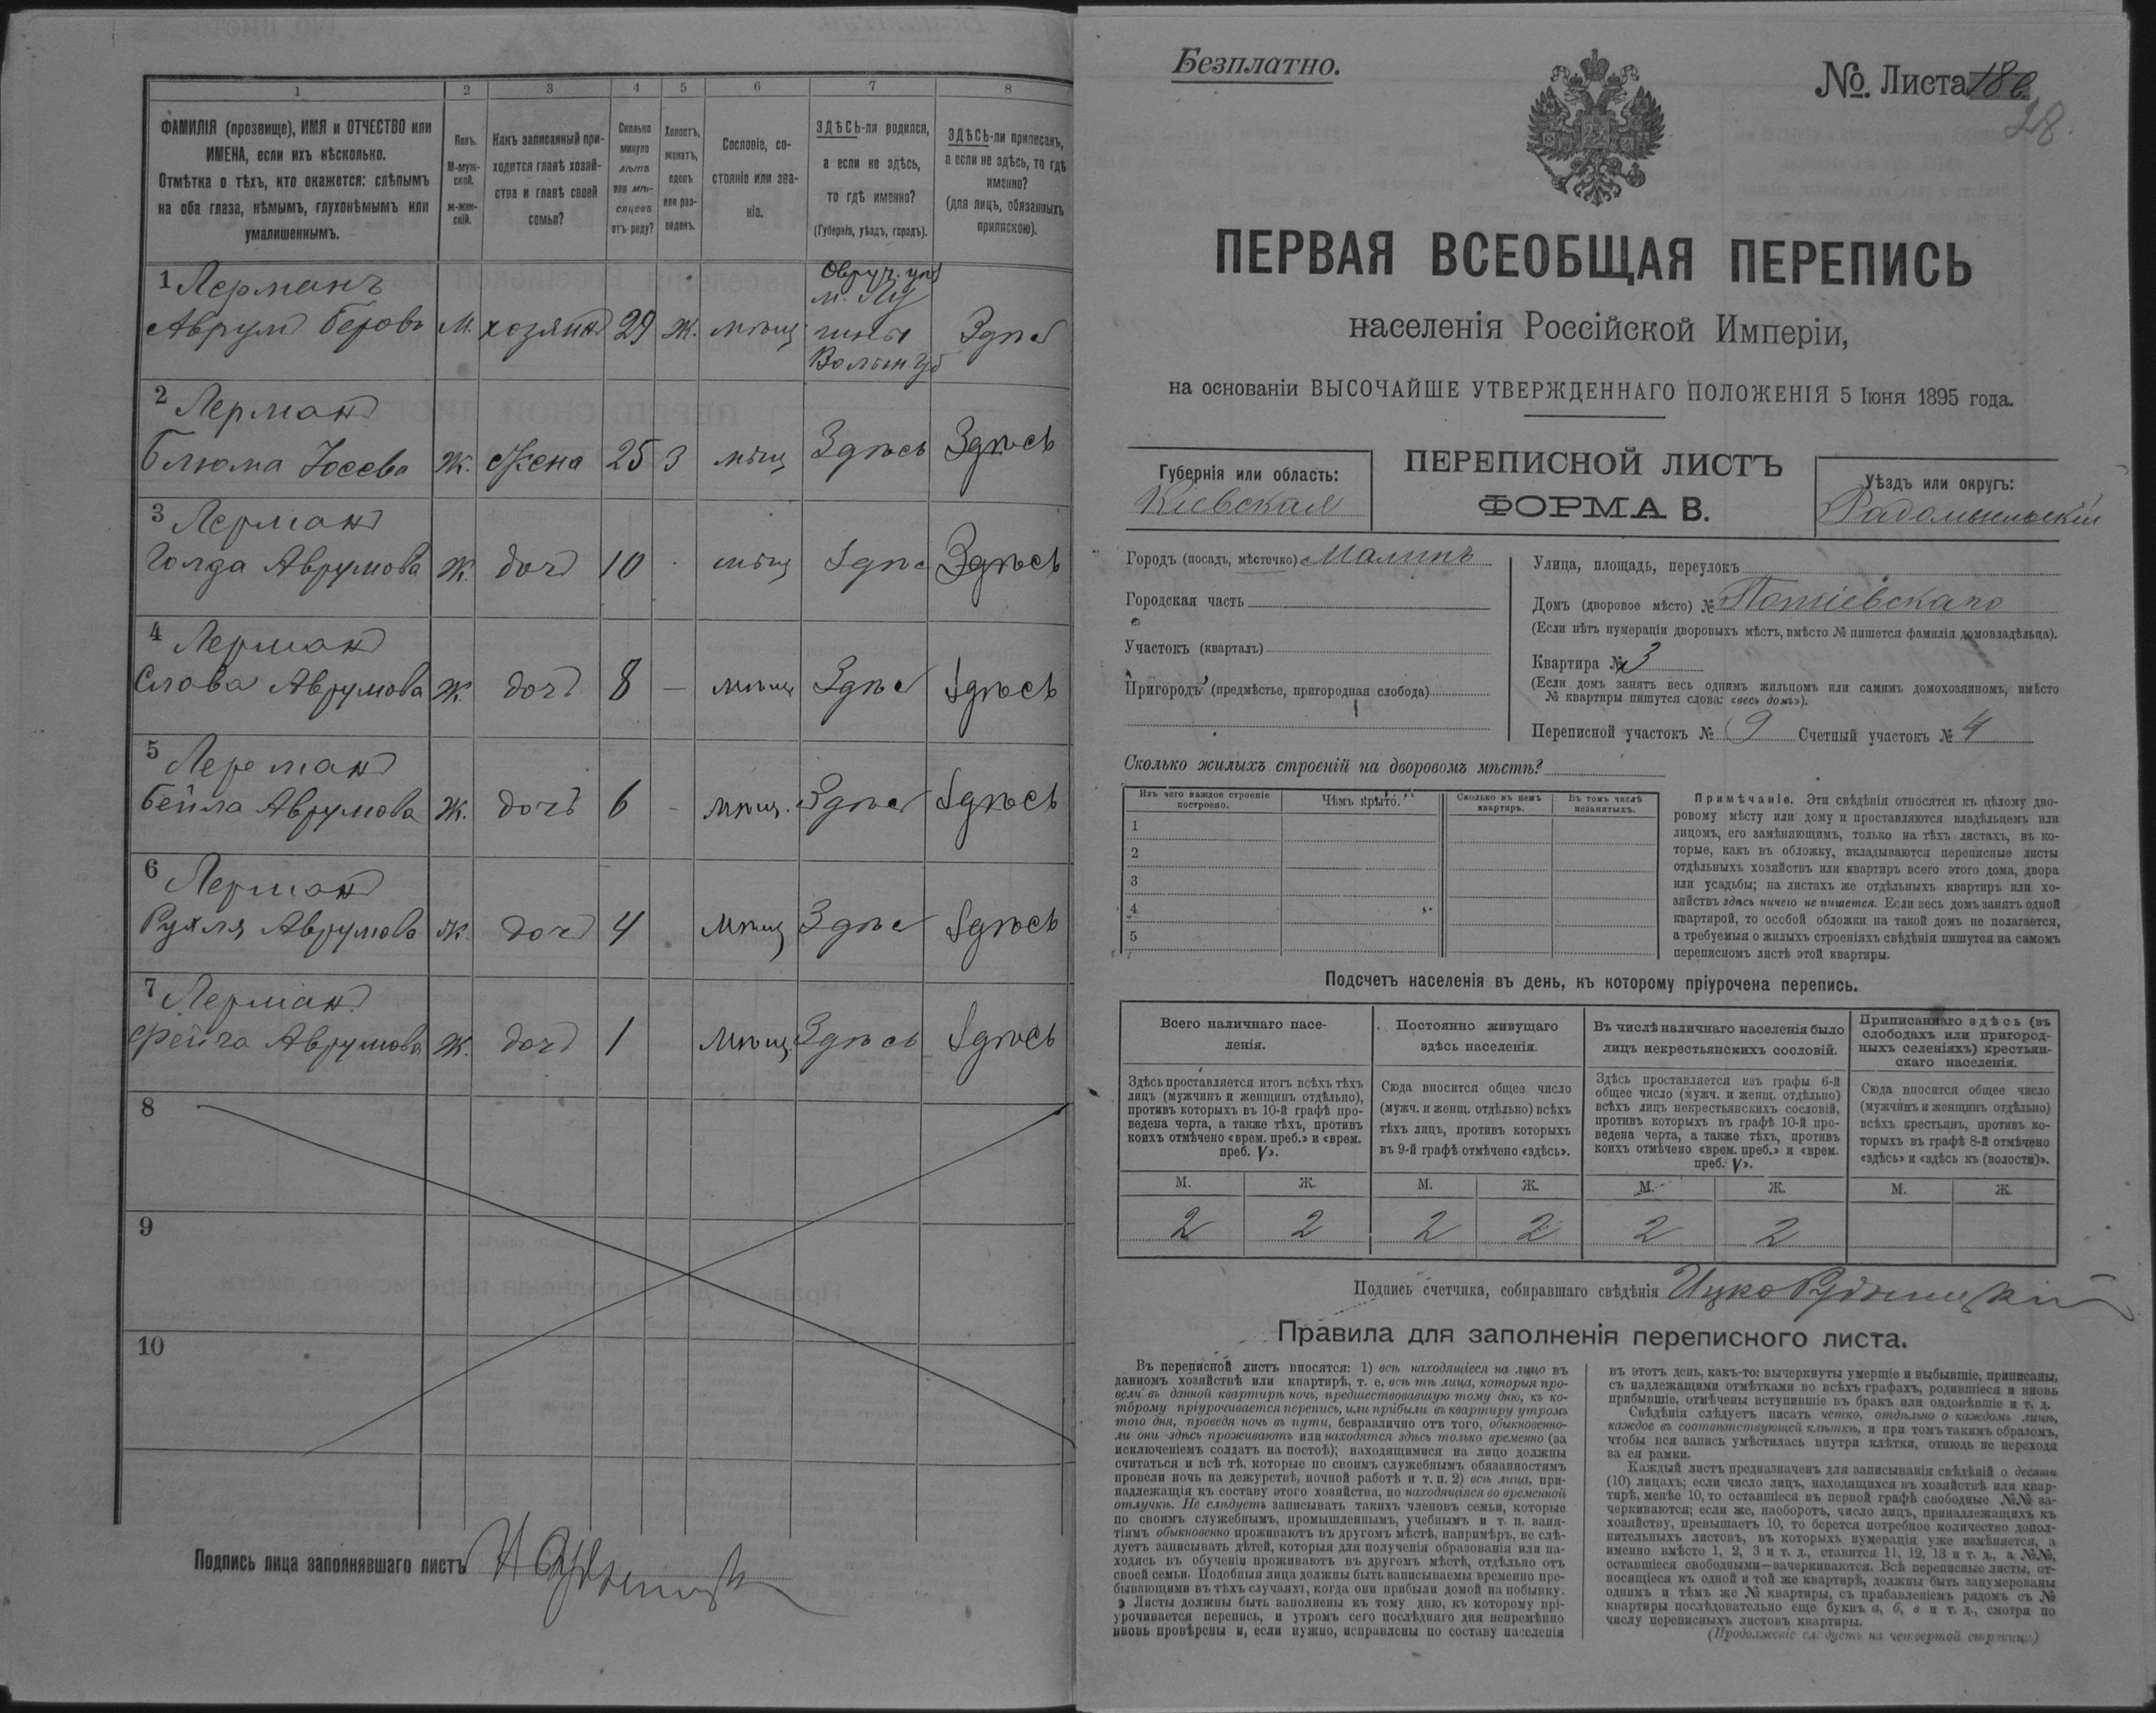 1 2 3 4 5 6 7 8
ФАМИЛІЯ (прозвище), ИМЯ и ОТЧЕСТВО или
ИМЕНА, если ихъ нѣсколько.
Отмѣтка о тѣхъ, кто окажется: слѣпымъ
на оба глаза, нѣмымъ, глухонѣмымъ или
умалишеннымъ.
Полъ.
М-муж-
ской.
Ж-жен-
скій.
Какъ записанный при-
ходится главѣ хозяй-
ства и главѣ своей
семьи?
Сколько
минуло
лѣтъ
или мѣ-
сяцевъ
отъ роду?
Холостъ,
женатъ,
вдовъ
или раз-
веденъ.
Сословіе, со-
стояніе или зва-
ніе.
ЗДѢСЬ-ли родился,
а если не здѣсь,
то гдѣ именно?
(Губернія, уѣздъ, городъ).
ЗДѢСЬ-ли приписанъ,
а если не здѣсь, то гдѣ
именно?
(для лицъ, обязанныхъ
припискою).
1 Лерманъ
Аврумъ Беровъ М. хозяинъ 29 Ж. мѣщ
Овруч. уѣз
м. Лу
гины
Волын губ
Здѣсь
2 Лерманъ
Блюма Іосева Ж. Жена 25 З мѣщ Здѣсь Здѣсь
3 Лерманъ
Голда Аврумова Ж. дочь 10 мѣщ Здѣсь Здѣсь
4 Лерманъ
Слова Аврумова Ж. дочь 8 — мѣщ Здѣсь Здѣсь
5 Лерманъ
Бейла Аврумова Ж. дочь 6 - мѣщ. Здѣсь Здѣсь
6 Лерманъ
Рухля Аврумова Ж. дочь 4 мѣщ Здѣсь Здѣсь
7 Лерманъ
Фейга Аврумова Ж. дочь 1 мѣщ. Здѣсь Здѣсь
8
9
10
Подпись лица заполнявшаго листъ
Безплатно.
№. Листа 18 в.
28.
ПЕРВАЯ ВСЕОБЩАЯ ПЕРЕПИСЬ
населенія Россійской Имперіи,
на основаніи ВЫСОЧАЙШЕ УТВЕРЖДЕННАГО ПОЛОЖЕНІЯ 5 Іюня 1895 года.
Губернія или область:
Кіевская
ПЕРЕПИСНОЙ ЛИСТЪ
ФОРМА В.
Уѣздъ или округъ:
Радомысльскій
Городъ (посадъ, мѣстечко) Малинъ
Городская часть
Участокъ (кварталъ)
Пригородъ (предмѣстье, пригородная слобода)
Улица, площадь, переулокъ
Домъ (дворовое мѣсто) № Потіевскаго
(Если нѣтъ нумераціи дворовыхъ мѣстъ, вмѣсто № пишется фамилія домовладѣльца).
Квартира № 3
(Если домъ занятъ весь однимъ жильцомъ или самимъ домохозяиномъ, вмѣсто
№ квартиры пишутся слова: «весь домъ»).
Переписной участокъ № 9 Счетный участокъ № 4
Сколько жилыхъ строеній на дворовомъ мѣстѣ?
Изъ чего каждое строеніе
построено.
Чѣмъ крыто.
Сколько въ немъ
квартиръ.
Въ томъ числѣ
незанятыхъ.
1
2
3
4
5
Примѣчаніе. Эти свѣдѣнія относятся къ цѣлому дво-
ровому мѣсту или дому и проставляются владѣльцемъ или
лицомъ, его замѣняющимъ, только на тѣхъ листахъ, въ ко-
торые, какъ въ обложку, вкладываются переписные листы
отдѣльныхъ хозяйствъ или квартиръ всего этого дома, двора
или усадьбы; на листахъ же отдѣльныхъ квартиръ или хо-
зяйствъ здѣсь ничего не пишется. Если весь домъ занятъ одной
квартирой, то особой обложки на такой домъ не полагается,
а требуемыя о жилыхъ строеніяхъ свѣдѣнія пишутся на самомъ
переписномъ листѣ этой квартиры.
Подсчетъ населенія въ день, къ которому пріурочена перепись.
Всего наличнаго насе-
ленія.
Постоянно живущаго
здѣсь населенія.
Въ числѣ наличнаго населенія было
лицъ некрестьянскихъ сословій.
Приписаннаго здѣсь (въ
слободахъ или пригород-
ныхъ селеніяхъ) крестьян-
скаго населенія.
Здѣсь проставляется итогъ всѣхъ тѣхъ
лицъ (мужчинъ и женщинъ отдѣльно),
противъ которыхъ въ 10-й графѣ про-
ведена черта, а также тѣхъ, противъ
коихъ отмѣчено «врем. преб.» и «врем.
преб. V».
Сюда вносится общее число
(мужч. и женщ. отдѣльно) всѣхъ
тѣхъ лицъ, противъ которыхъ
въ 9-й графѣ отмѣчено «здѣсь».
Здѣсь проставляется изъ графы 6-й
общее число (мужч. и женщ. отдѣльно)
всѣхъ лицъ некрестьянскихъ сословій,
противъ которыхъ въ графѣ 10-й про-
ведена черта, а также тѣхъ, противъ
коихъ отмѣчено «врем. преб.» и «врем.
преб. V».
Сюда вносится общее число
(мужчинъ и женщинъ отдѣльно)
всѣхъ крестьянъ, противъ ко-
торыхъ въ графѣ 8-й отмѣчено
«здѣсь» и «здѣсь къ (волости)».
М. Ж. М. Ж. М. Ж. М. Ж.
2 2 2 2 2 2
Подпись счетчика, собиравшаго свѣдѣнія Ицко
Правила для заполненія переписного листа.
Въ переписной листъ вносятся: 1) всѣ находящіеся на лицо въ
данномъ хозяйствѣ или квартирѣ, т. е. всѣ тѣ лица, которыя про-
вели въ данной квартирѣ ночь, предшествовавшую тому дню, къ ко-
торому пріурочивается перепись, или прибыли въ квартиру утромъ
того дня, проведя ночь въ пути, безразлично отъ того, обыкновенно-
ли они здѣсь проживаютъ или находятся здѣсь только временно (за
исключеніемъ солдатъ на постоѣ); находящимися на лицо должны
считаться и всѣ тѣ, которые по своимъ служебнымъ обязанностямъ
провели ночь на дежурствѣ, ночной работѣ и т. п. 2) всѣ лица, при-
надлежащія къ составу этого хозяйства, но находящіяся во временной
отлучкѣ. Не слѣдуетъ записывать такихъ членовъ семьи, которые
по своимъ служебнымъ, промышленнымъ, учебнымъ и т. п. заня-
тіямъ обыкновенно проживаютъ въ другомъ мѣстѣ, напримѣръ, не слѣ-
дуетъ записывать дѣтей, которыя для полученія образованія или на-
ходясь въ обученіи проживаютъ въ другомъ мѣстѣ, отдѣльно отъ
своей семьи. Подобныя лица должны быть записываемы временно пре-
бывающими въ тѣхъ случаяхъ, когда они прибыли домой на побывку.
Листы должны быть заполнены къ тому дню, къ которому прі-
урочивается перепись, и утромъ сего послѣдняго дня непремѣнно
вновь провѣрены и, если нужно, исправлены по составу населенія
въ этотъ день, какъ-то: вычеркнуты умершіе и выбывшіе, приписаны,
съ надлежащими отмѣтками во всѣхъ графахъ, родившіеся и вновь
прибывшіе, отмѣчены вступившіе въ бракъ или овдовѣвшіе и т. д.
Свѣдѣнія слѣдуетъ писать четко, отдѣльно о каждомъ лицѣ,
каждое въ соотвѣтствующей клѣткѣ, и при томъ такимъ образомъ,
чтобы вся запись умѣстилась внутри клѣтки, отнюдь не переходя
за ея рамки.
Каждый листъ предназначенъ для записыванія свѣдѣній о десяти
(10) лицахъ; если число лицъ, находящихся въ хозяйствѣ или квар-
тирѣ, менѣе 10, то оставшіеся въ первой графѣ свободные №№ за-
черкиваются; если же, наоборотъ, число лицъ, принадлежащихъ къ
хозяйству, превышаетъ 10, то берется потребное количество допол-
нительныхъ листовъ, въ которыхъ нумерація уже измѣняется, а
именно вмѣсто 1, 2, 3 и т. д., ставится 11, 12, 13 и т. д., а №№,
оставшіеся свободными—зачеркиваются. Всѣ переписные листы, от-
носящіеся къ одной и той же квартирѣ, должны быть занумерованы
однимъ и тѣмъ же № квартиры, съ прибавленіемъ рядомъ съ №
квартиры послѣдовательно еще буквъ а, б, в и т. д., смотря по
числу переписныхъ листовъ квартиры.
(Продолженіе слѣдуетъ на четвертой страницѣ)